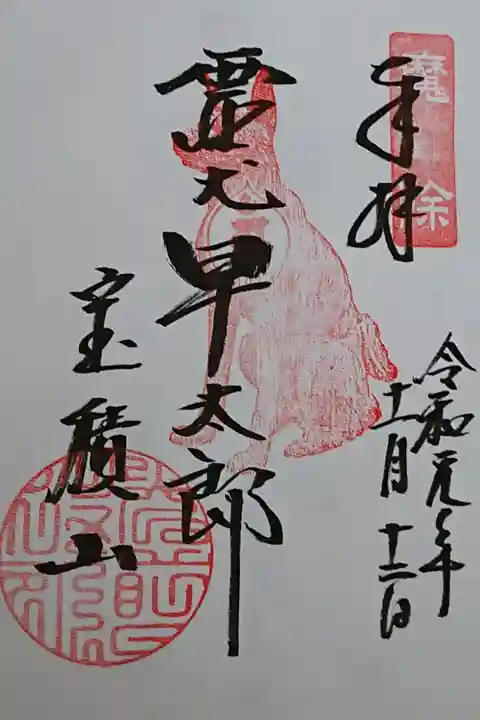 魔除
奉拝
令和元年
十一月十二日
霊犬早太郎
宝積山